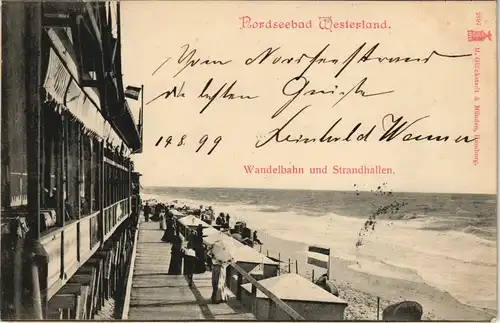 Nordseebad Westerland.
Vom Nordseestrand
die besten Grüße
19.8.99 Reinhold Wanner
Wandelbahn und Strandhallen.
M. Glückstadt & Münden, Hamburg.